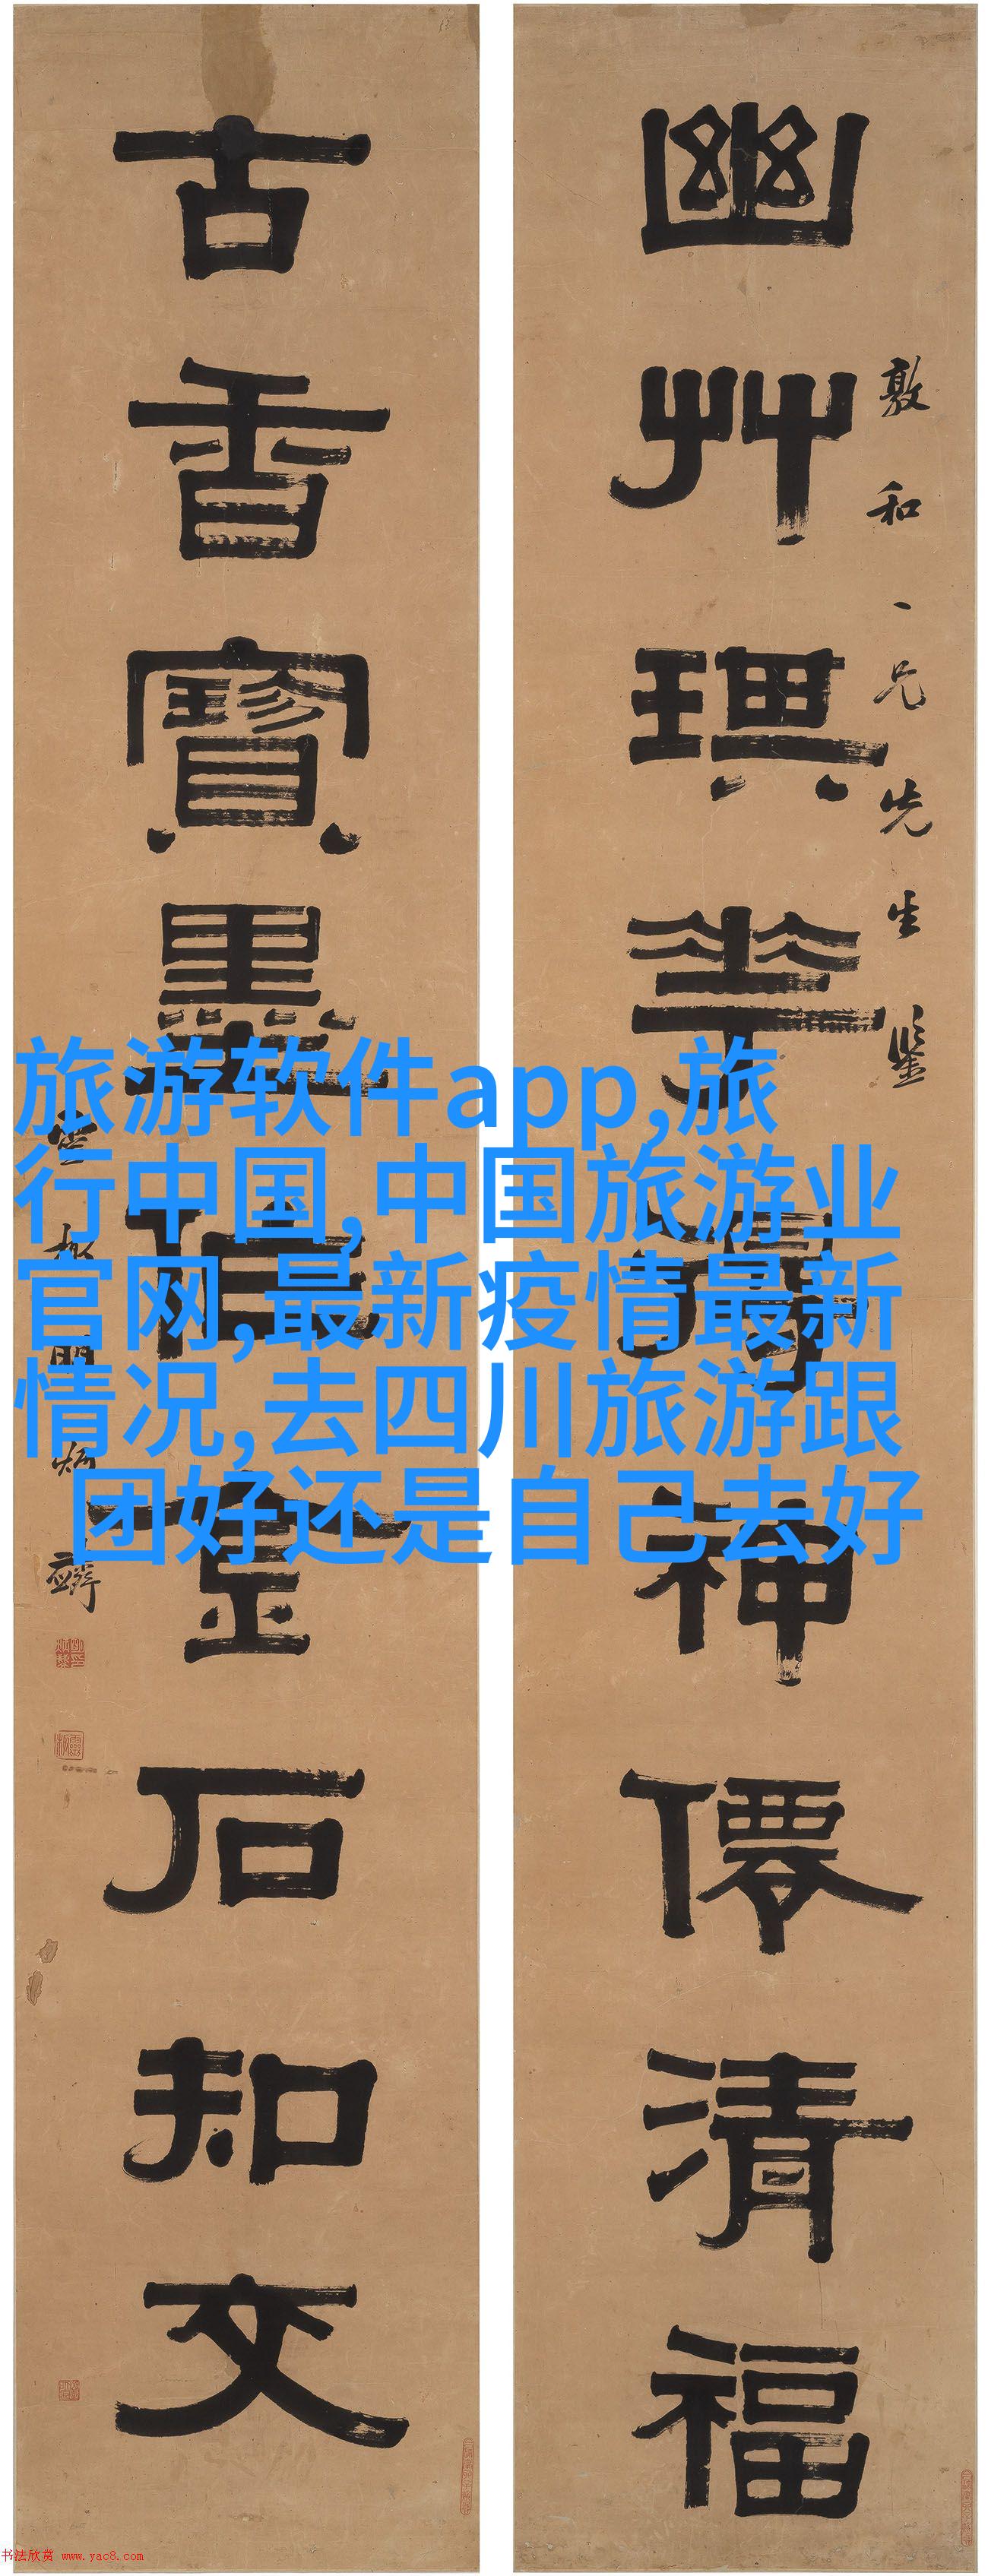 幽艸琪華得神僊清福
敦和一兄先生鑒
古香寶墨作金石知文
雲樵
炳
旅游软件app,旅
行中国,中国旅游业
官网,最新疫情最新
情况,去四川旅游跟
团好还是自己去好
书法欣赏 www.yac8.com